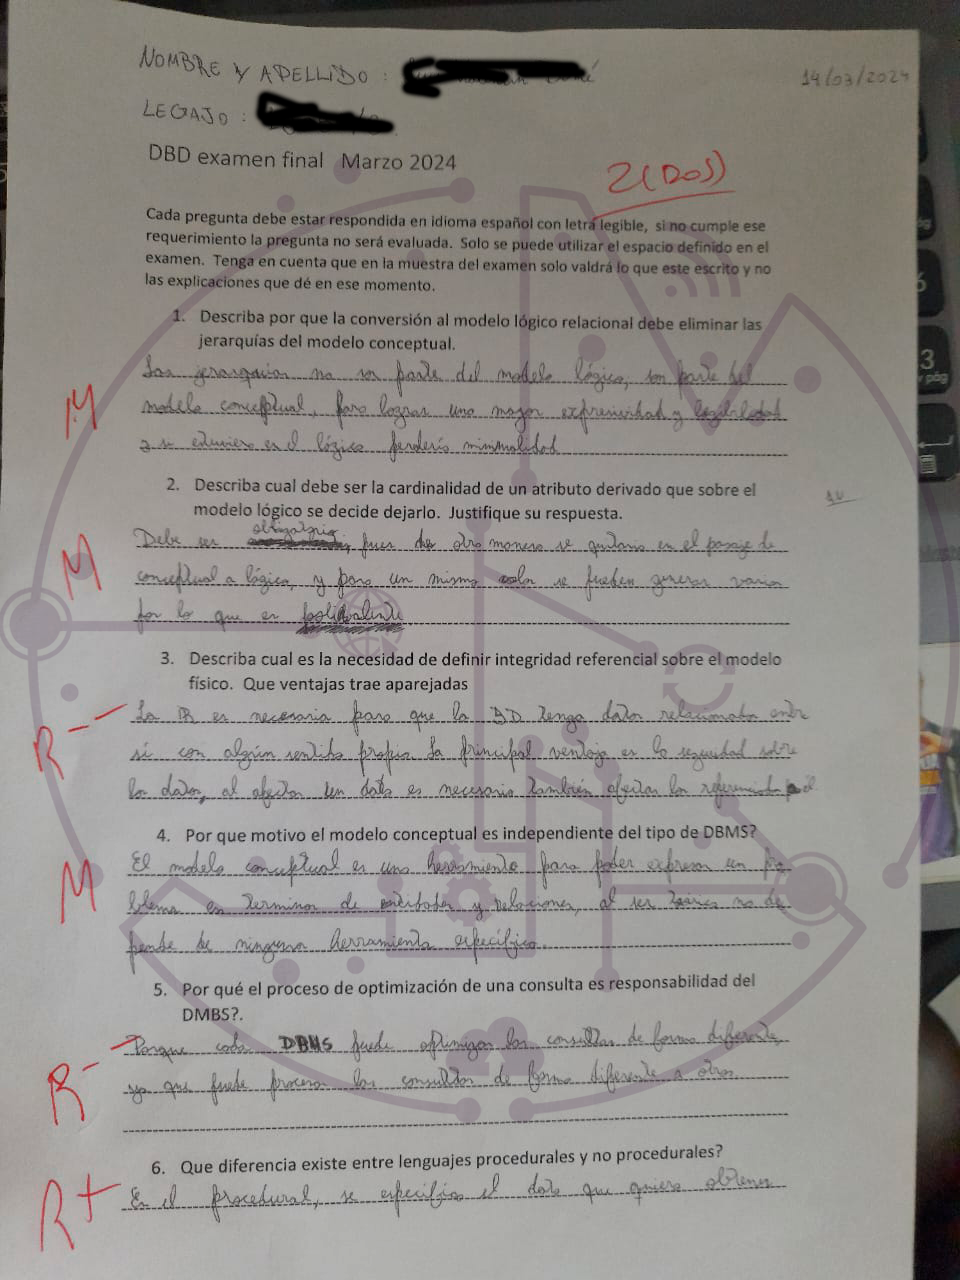 NOMBRE Y APELLIDO :
14/03/2024
LEGAJO :
DBD examen final Marzo 2024
2(DOS)
Cada pregunta debe estar respondida en idioma español con letra legible, si no cumple ese
requerimiento la pregunta no será evaluada. Solo se puede utilizar el espacio definido en el
examen. Tenga en cuenta que en la muestra del examen solo valdrá lo que este escrito y no
las explicaciones que dé en ese momento.
1. Describa por que la conversión al modelo lógico relacional debe eliminar las
jerarquías del modelo conceptual.
Las jerarquias no son parte del modelo lógico, son parte del
M
modelo conceptual, para lograr una mayor expresividad y legibilidad
y si estuviera en el lógico perdería minimalidad
2. Describa cual debe ser la cardinalidad de un atributo derivado que sobre el
modelo lógico se decide dejarlo. Justifique su respuesta.
obligatorio
Debe ser , pues de otra manera se quitaria en el pasaje de
M
conceptual a lógico, y para un mismo valor se pueden generar varios
por lo que es polivalente
3. Describa cual es la necesidad de definir integridad referencial sobre el modelo
físico. Que ventajas trae aparejadas
La IR es necesaria para que la BD tenga datos relacionados entre
R--
sí con algún sentido propio. La principal ventaja es la seguridad sobre
los datos, al afectar un dato es necesario también afectar los referenciados por él
4. Por que motivo el modelo conceptual es independiente del tipo de DBMS?
El modelo conceptual es una herramienta para poder expresar un pro
M
blema en terminos de entidades y relaciones, al ser no de
pende de ninguna herramienta específica.
5. Por qué el proceso de optimización de una consulta es responsabilidad del
DMBS?.
Porque cada DBMS puede optimizar las consultas de forma diferente,
R--
ya que puede procesar las consultas de forma diferente a otros.
6. Que diferencia existe entre lenguajes procedurales y no procedurales?
En el procedural, se especifica el dato que quiero obtener
R+
3